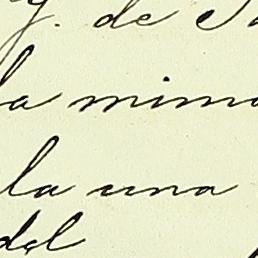 y. de
la mima
la una
del